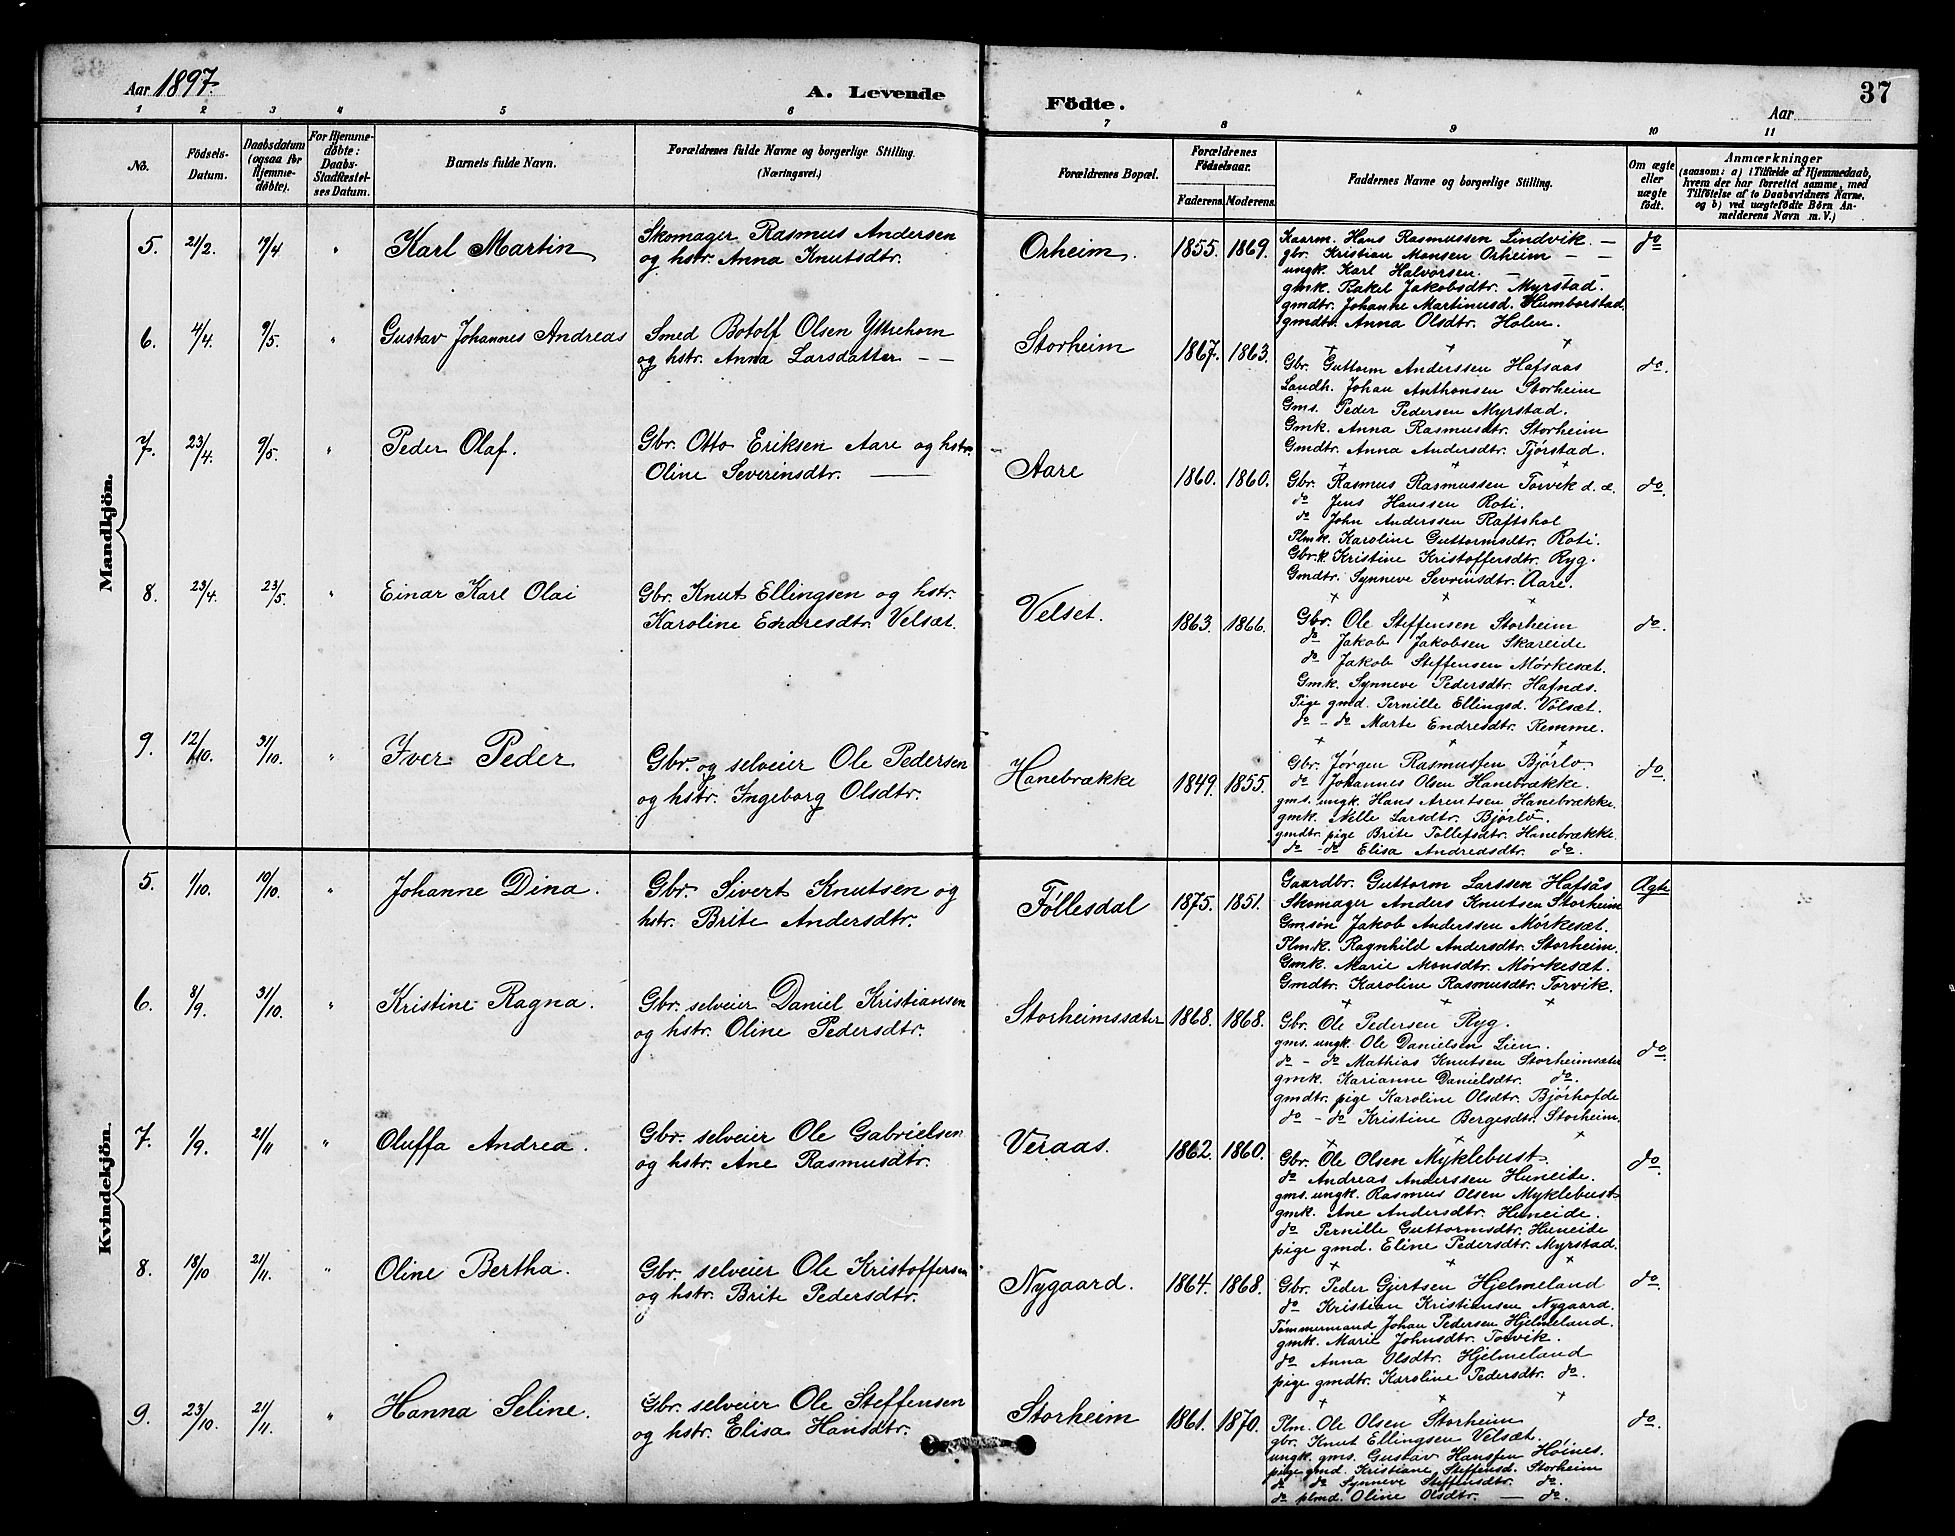 Aar 1897.
A. Levende Födte.
Aar
37
1 2 3 4 5 6 7 8 9 10 11
No.
Födsels-
Datum.
Daabsdatum
(ogsaa for
Hjemme-
døbte).
For Hjemme-
døbte:
Daabs-
Stadfæstel-
ses Datum.
Barnets fulde Navn.
Forældrenes fulde Navne og borgerlige Stilling.
(Næringsvei.)
Forældrenes Bopæl.
Forældrenes
Födselsaar.
Faderens. Moderens.
Faddernes Navne og borgerlige Stilling.
Om ægte
eller
uægte
födt.
Anmærkninger
(saasom: a) i Tilfælde af Hjemmedaab,
hvem der har forrettet samme, med
Tilföielse af to Daabsvidners Navne.
og b) ved uægtefödte Börn An-
melderens Navn m. V.)
Mandkjön.
5. 21/2. 19/4 " Karl Martin
Skomager Rasmus Andersen
og hstr. Anna Knutsdtr.
Orheim. 1855. 1869.
Kaarm. Hans Rasmussen Lindvik. —
gbr. Kristian Monsen Orheim — —
ungk. Karl Halvorsen. — — —
gmk. Rakel Jakobsdtr. Myrstad.
gmdtr. Johanne Martinusd. Humborstad
gmdtr. Anna Olsdtr. Holen.
do
6. 4/4. 9/5. " Gustav Johannes Andreas
Smed Botolf Olsen Yttrehorn
og hstr. Anna Larsdatter — —
Storheim 1867. 1863.
Gbr. Guttorm Anderssen Hafsaas
Landh. Johan Anthonsen Storheim
Gms. Peder Pedersen Myrstad.
Gmk. Anna Rasmusdtr. Storheim
Gmdtr. Anna Andersdtr. Tjørstad.
do.
7. 23/4. 9/5. " Peder Olaf.
Gbr. Otto Eriksen Aare og hstr.
Oline Severinsdtr. —
Aare 1860. 1860.
Gbr. Rasmus Rasmussen Torvik d. æ.
do Jens Hanssen Roti.
do John Anderssen Raftshol
Plmk. Karoline Guttormsdtr. Roti.
Gbr.k. Kristine Kristoffersdtr. Ryg.
Gmdtr. Synneve Sevrinsdtr. Aare.
do.
8. 23/4. 23/5. " Einar Karl Olai
Gbr. Knut Ellingsen og hstr.
Karoline Endresdtr. Velsæt.
Velset. 1863. 1866.
Gbr. Ole Steffensen Storheim
do Jakob Jakobsen Skareide
do Jakob Steffensen Mørkesæt.
Gmk. Synneve Pedersdtr. Hafnæs.
Pige gmd. Pernille Ellingsd. Velsæt.
do - do Marte Endresdtr. Remme.
do.
9. 12/10. 31/10. " Iver Peder
Gbr. og selveier Ole Pedersen
og hstr. Ingeborg Olsdtr.
Hanebrække 1849. 1855.
Gbr. Jørgen Rasmussen Bjørlo
do Johannes Olsen Hanebrække.
gms. ungk. Hans Arentsen Hanebrække.
gmk. Nille Larsdtr. Bjørlo.
gmdtr. pige Brite Tollefsdtr. Hanebrække
do - do Elisa Andreasdtr. do.
do
Kvindekjön.
5. 1/10. 10/10 " Johanne Dina.
Gbr. Sivert Knutsen og
hstr. Brite Andersdtr.
Føllesdal 1875. 1851.
Gaardbr. Guttorm Larssen Hafsås
Skomager Anders Knutsen Storheim
Gmsøn Jakob Anderssen Mørkesæt.
Plm.k. Ragnhild Andersdtr. Storheim.
Gmk. Marie Monsdtr. Mørkesæt.
Gmdtr. Karoline Rasmusdtr. Torvik.
Ægte
6. 8/9. 31/10. " Kristine Ragna.
Gbr. selveier Daniel Kristiansen
og hstr. Oline Pedersdtr.
Storheimssæter 1868. 1868.
Gbr. Ole Pedersen Ryg.
gms. ungk. Ole Danielsen Lien.
do - do Mathias Knutsen Storheimsæter
gmk. Karianne Danielsdtr. do.
gmdtr. pige Karoline Olsdtr. Bjørhofde
do - do Kristine Bergesdtr. Storheim.
do.
7. 1/9. 21/11 " Oluffa Andrea.
Gbr. selveier Ole Gabrielsen
og hstr. Ane Rasmusdtr.
Veraas. 1862. 1860.
Gbr. Ole Olsen Myklebust.
do Andreas Anderssen Huneide.
gms. ungk. Rasmus Olsen Myklebust
gmk. Ane Andersdtr. Huneide.
do Pernille Guttormsdtr. Huneide
pige gmd. Eline Pedersdtr. Myrstad.
do.
8. 18/10 21/11. " Oline Bertha.
Gbr. selveier Ole Kristoffersen
og hstr. Brite Pedersdtr.
Nygaard. 1864. 1868.
Gbr. Peder Gjertsen Hjelmeland
do Kristian Kristiansen Nygaard.
Tømmermand Johan Pedersen Hjelmeland.
gmk. Marie Johnsdtr. Torvik.
do Anna Olsdtr. Hjelmeland
pige gmdtr. Karoline Pedersdtr. do.
do.
9. 23/10. 21/11. " Hanna Seline.
Gbr. selveier Ole Steffensen
og hstr. Elisa Hansdtr.
Storheim 1861. 1870.
Plm. Ole Olsen Storheim
gbr. Knut Ellingsen Velsæt.
ungk. gms. Gustav Hanssen Hoines.
pige gmd. Kristiane Steffensd. Storheim
do do Synneve Steffensdtr. do.
do plmd. Oline Olsdtr. — do.
do.